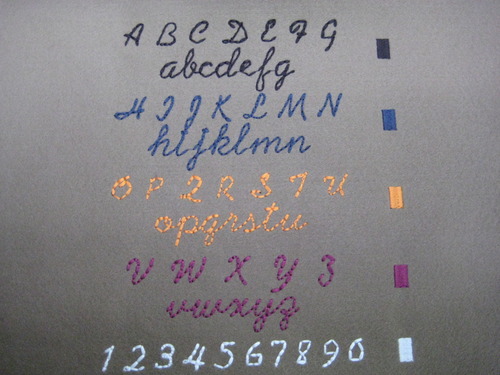 A B C D E F G
abcdefg
H I J K L M N
hijklmn
O P Q R S T U
opqrstu
V W X Y Z
vwxyz
1 2 3 4 5 6 7 8 9 0